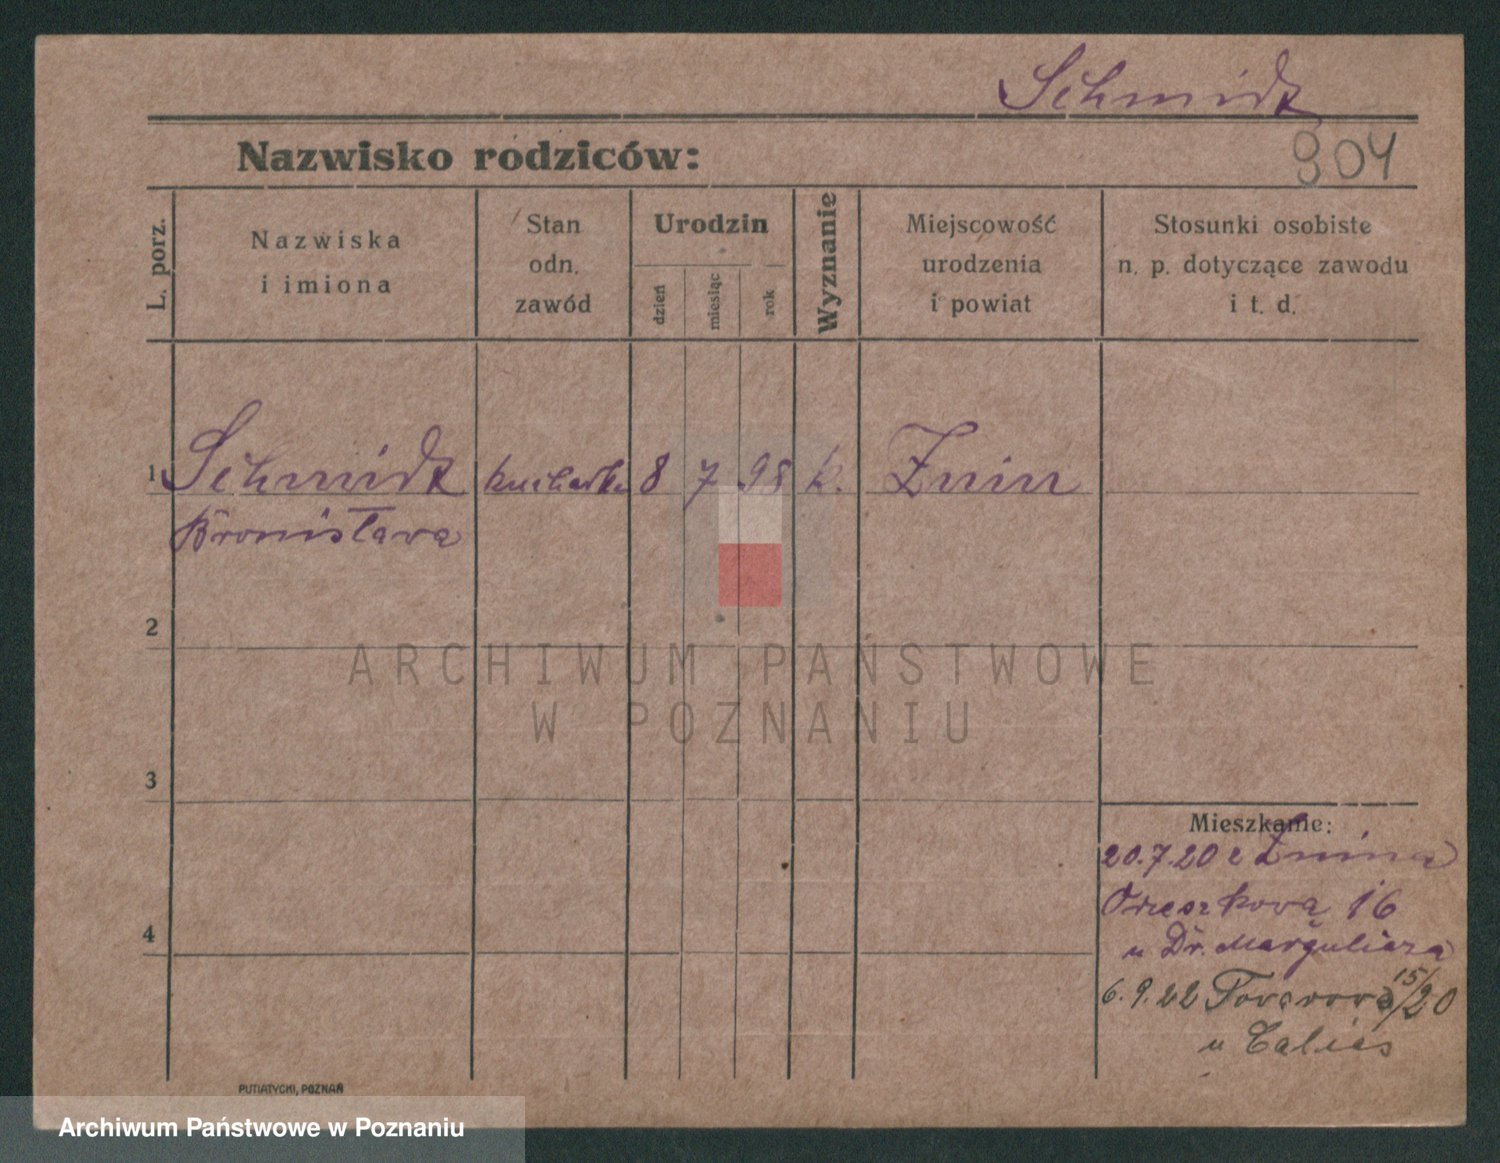 Schmidt
904
Nazwisko rodziców:
L. porz.
Nazwiska
i imiona
Stan
odn.
zawód
Urodzin
dzień
miesiąc
rok
Wyznanie
Miejscowość
urodzenia
i powiat
Stosunki osobiste
n. p. dotyczące zawodu
i t. d.
1 Schmidt kucharka 8 7 98 k. Żnin
Bronisława
2
ARCHIWUM PAŃSTWOWE
W POZNANIU
3
Mieszkanie:
20.7.20 z Żnina
Orzeszkowa 16
4
u Dr. Marguliesa
6.9.22 Towarowa 15/20
u
PUTIATYCKI, POZNAŃ
Archiwum Państwowe w Poznaniu